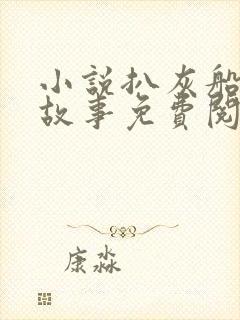 小説扒灰船
故事免費閱
康淼